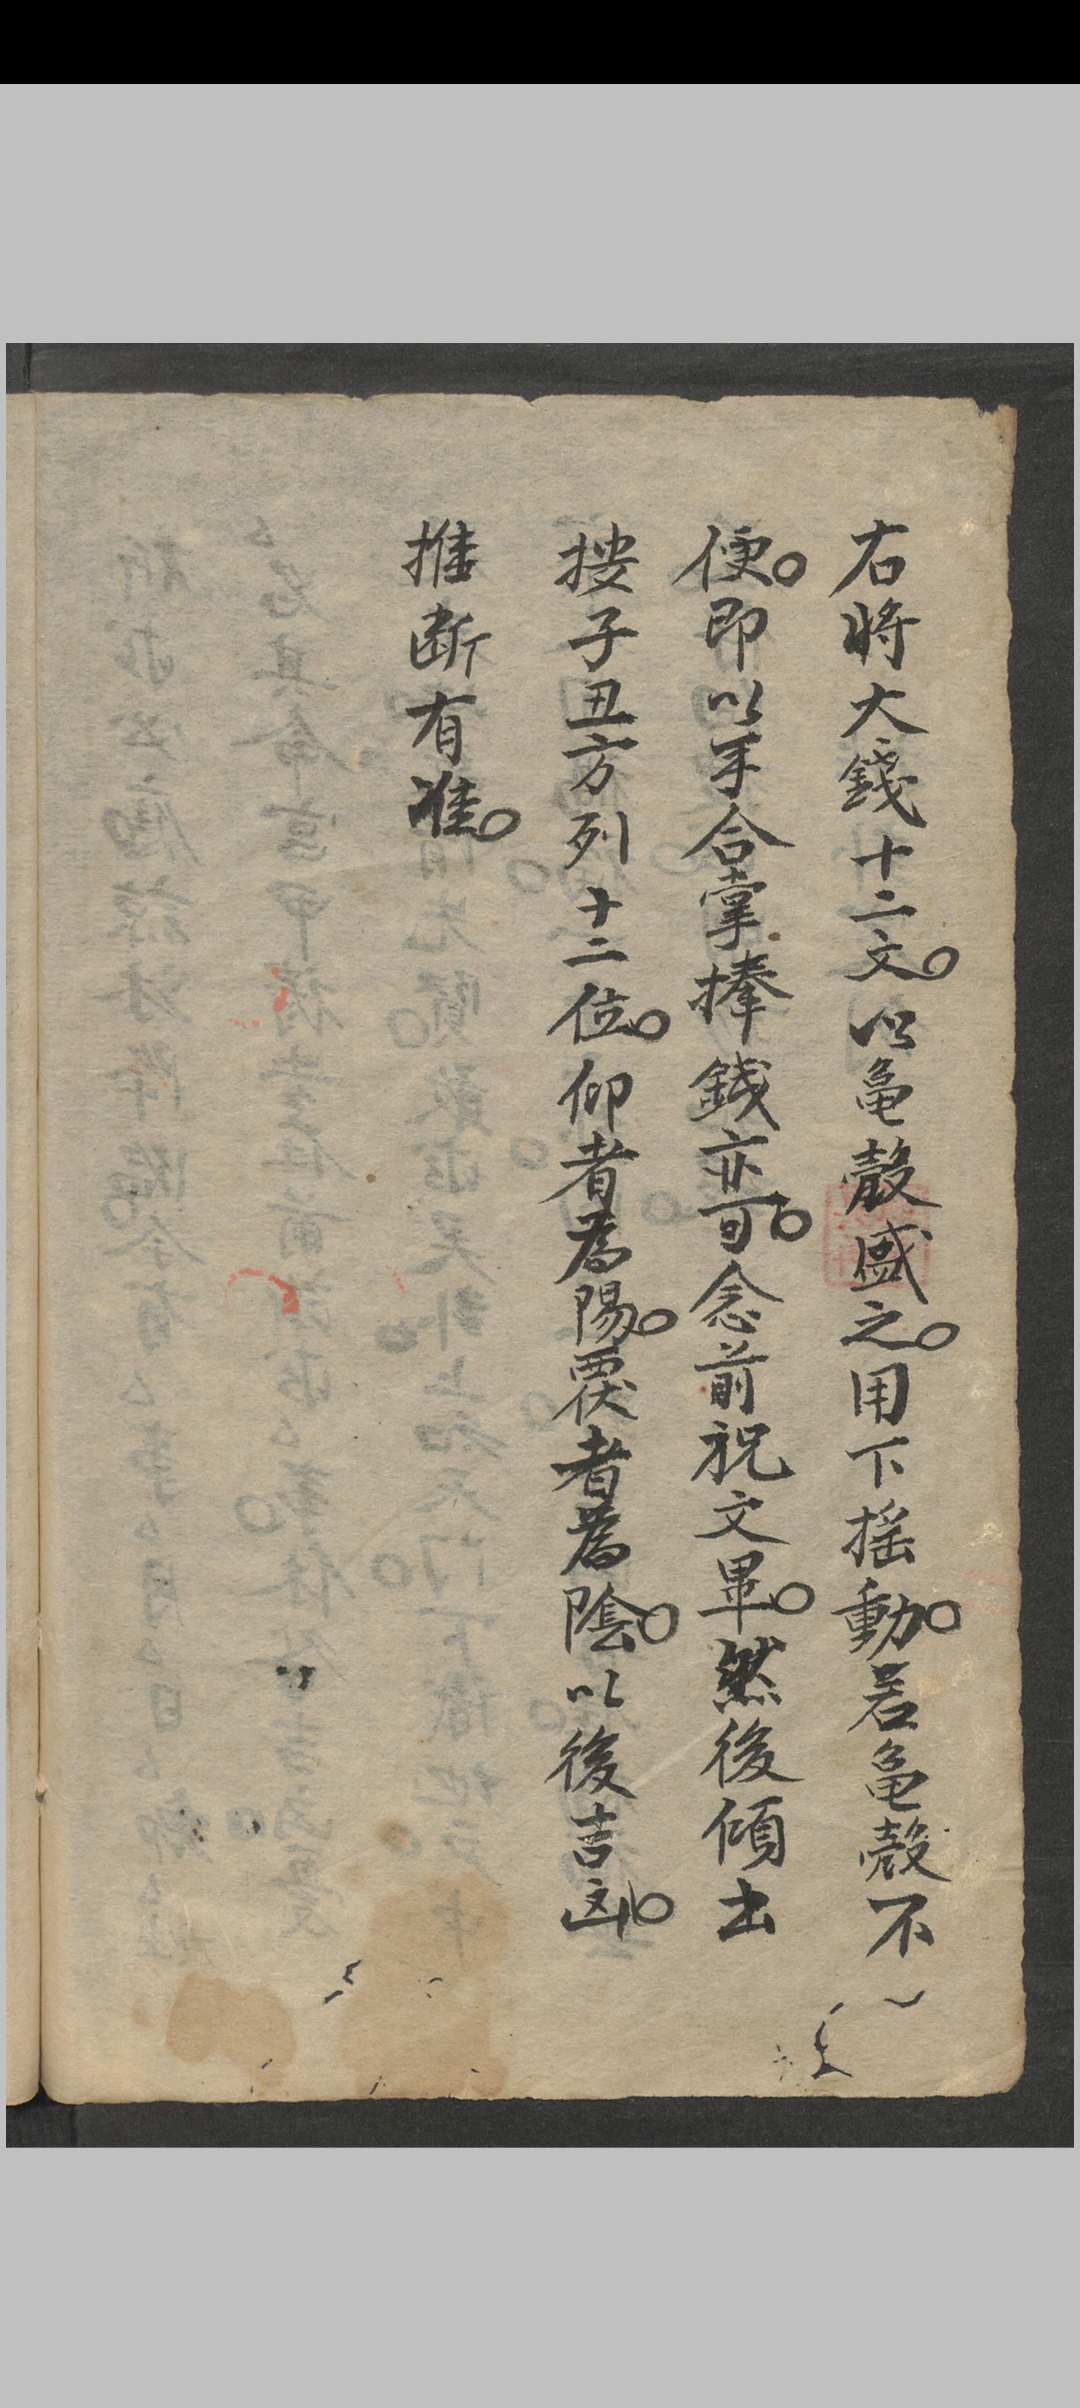 右將大錢十二文。以亀殼盛之。用下摇動。若亀殼不
便。即以手合掌捧錢亦可。念前祝文畢。然後傾出
按子丑方列十二位。仰者為陽。覆者為陰。以後吉凶。
推断有准。